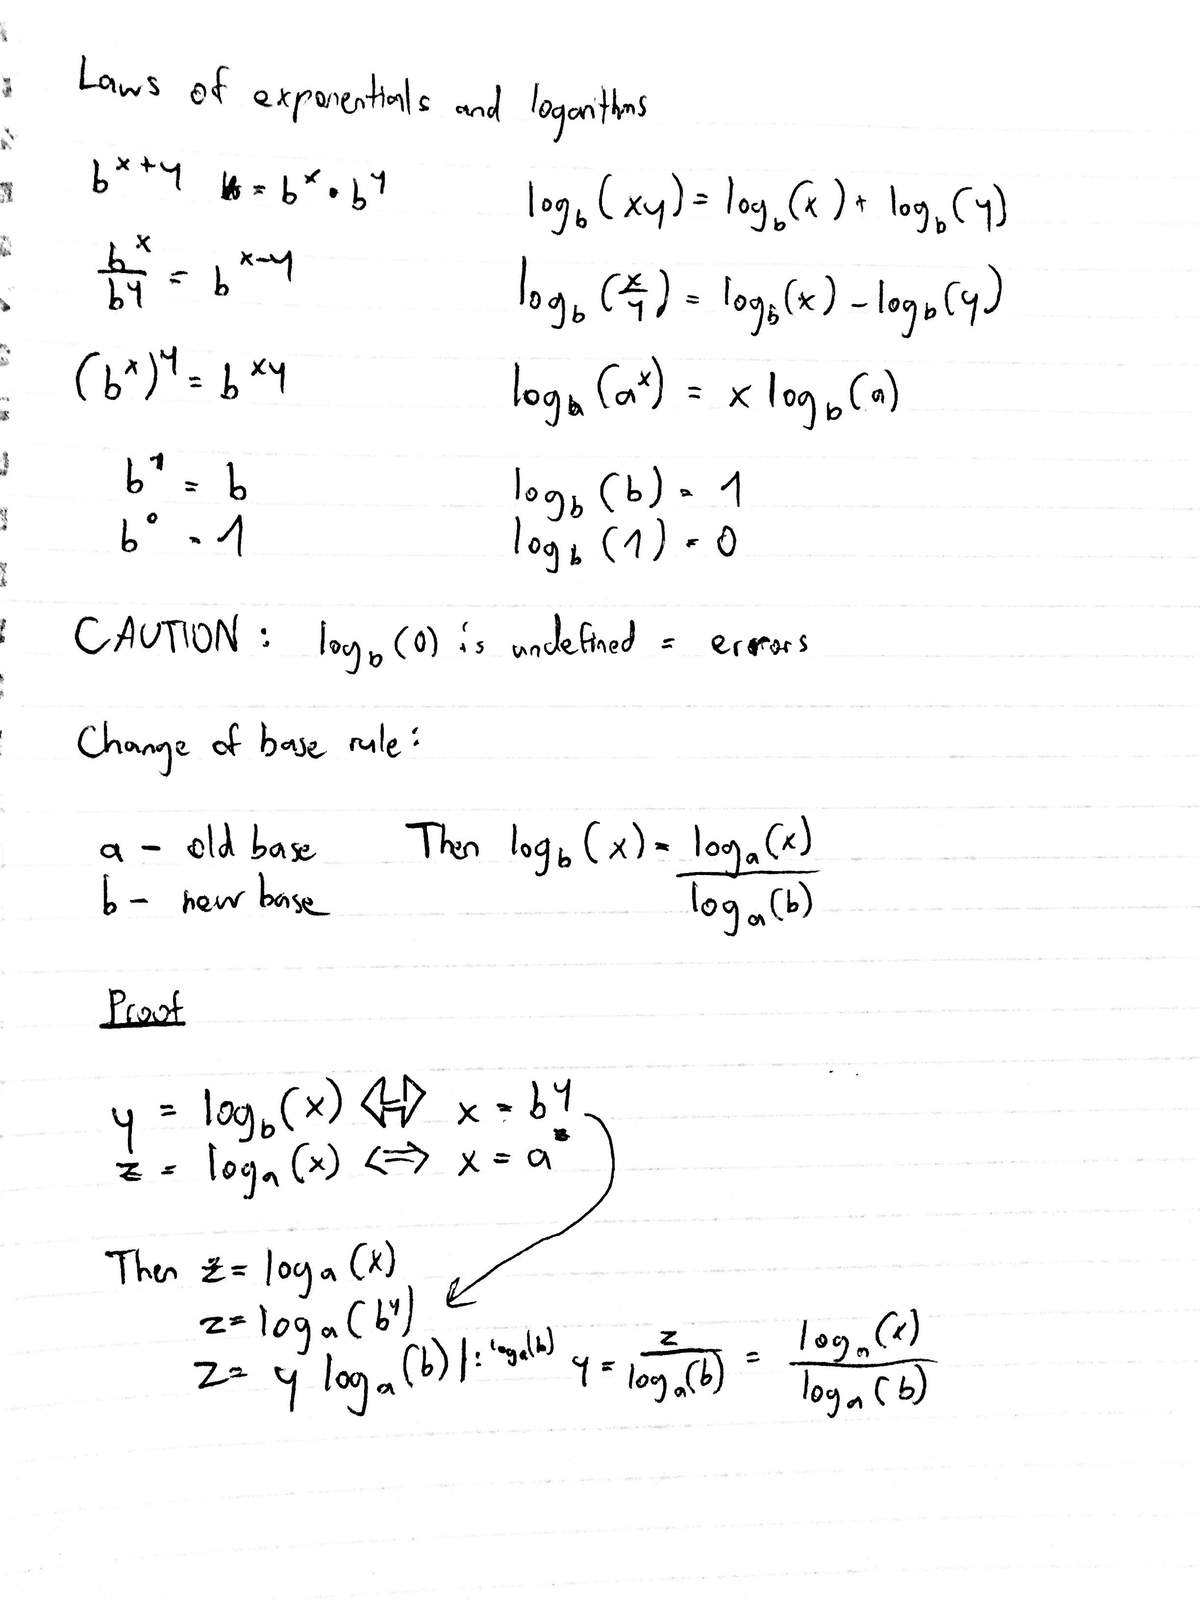 Laws of exponentials and logarithms
b^(x+y) = b^x • b^y    log_b(xy) = log_b(x) + log_b(y)
b^x/b^y = b^(x-y)    log_b(x/y) = log_b(x) - log_b(y)
(b^x)^y = b^(xy)    log_b(a^x) = x log_b(a)
b^1 = b    log_b(b) = 1
b^0 = 1    log_b(1) = 0
CAUTION: log_b(0) is undefined = errors
Change of base rule:
a - old base    Then log_b(x) = log_a(x)/log_a(b)
b - new base
Proof
y = log_b(x) ⇔ x = b^y
z = log_a(x) ⇔ x = a^z
Then z = log_a(x)
z = log_a(b^y)
z = y log_a(b) |: log_a(b)    y = z/log_a(b) = log_a(x)/log_a(b)